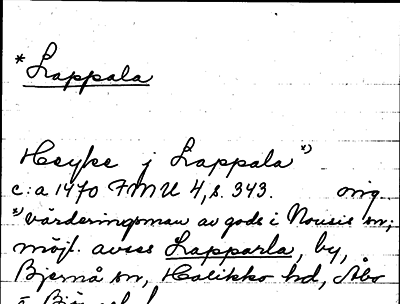 *Lappala
Heyke j Lappala x)
c:a 1470 FMU 4, s. 343. orig
x) värderingsman av gods i Nousis sn;
möjl. avses Lapparla, by,
Bjernå sn, Halikko hd, Åbo